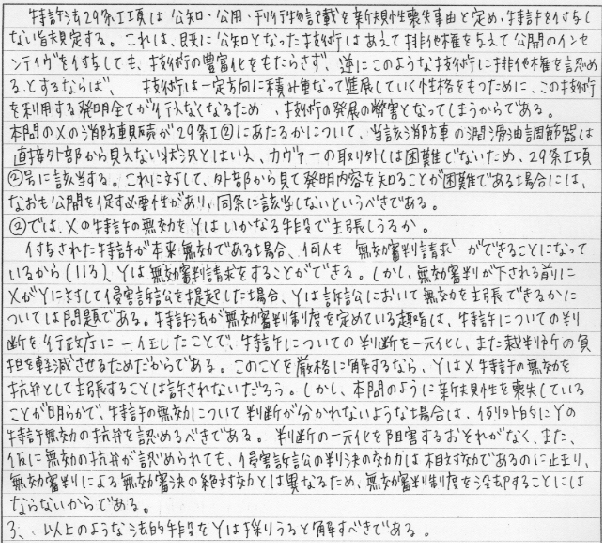 特許法29条1項は公知・公用・刊行物記載を新規性喪失事由と定め、特許を付与し
ない旨規定する。これは、既に公知となった技術はあえて排他権を与えて公開のインセ
ンティヴを付与しても、技術の豊富化をもたらさず、逆にこのような技術に排他権を認め
るとするならば、技術は一定方向に積み重なって進展していく性格をもつために、この技術
を利用する発明全てが行えなくなるため、技術の発展の弊害となってしまうからである。
本問のXの消防車販売が29条1②にあたるかについて、当該消防車の潤滑油調節器は
直接外部から見えない状況とはいえ、カヴァーの取り外しは困難でないため、29条1項
②号に該当する。これに対して、外部から見て発明内容を知ることが困難である場合には、
なおも公開を促す必要性があり、同条に該当しないというべきである。
②では、Xの特許の無効をYはいかなる手段で主張しうるか。
付与された特許が本来無効である場合、何人も無効審判請求ができることになって
いるから(113)、Yは無効審判請求をすることができる。しかし、無効審判が下される前に
XがYに対して侵害訴訟を提起した場合、Yは訴訟において無効を主張できるかに
ついては問題である。特許法が無効審判制度を定めている趣旨は、特許についての判
断を行政庁に一任したことで、特許についての判断を一元化し、また裁判所の負
担を軽減させるためだからである。このことを厳格に解するなら、YはX特許の無効を
抗弁として主張することは許されないだろう。しかし、本問のように新規性を喪失している
ことが明らかで、特許の無効について判断が分かれないような場合は、例外的にYの
特許無効の抗弁を認めるべきである。判断の一元化を阻害するおそれがなく、また、
仮に無効の抗弁が認められても、侵害訴訟の判決の効力は相対効であるのに止まり、
無効審判による無効審決の絶対効とは異なるため、無効審判制度を没却することには
ならないからである。
3、以上のような法的手段をYは採りうると解すべきである。